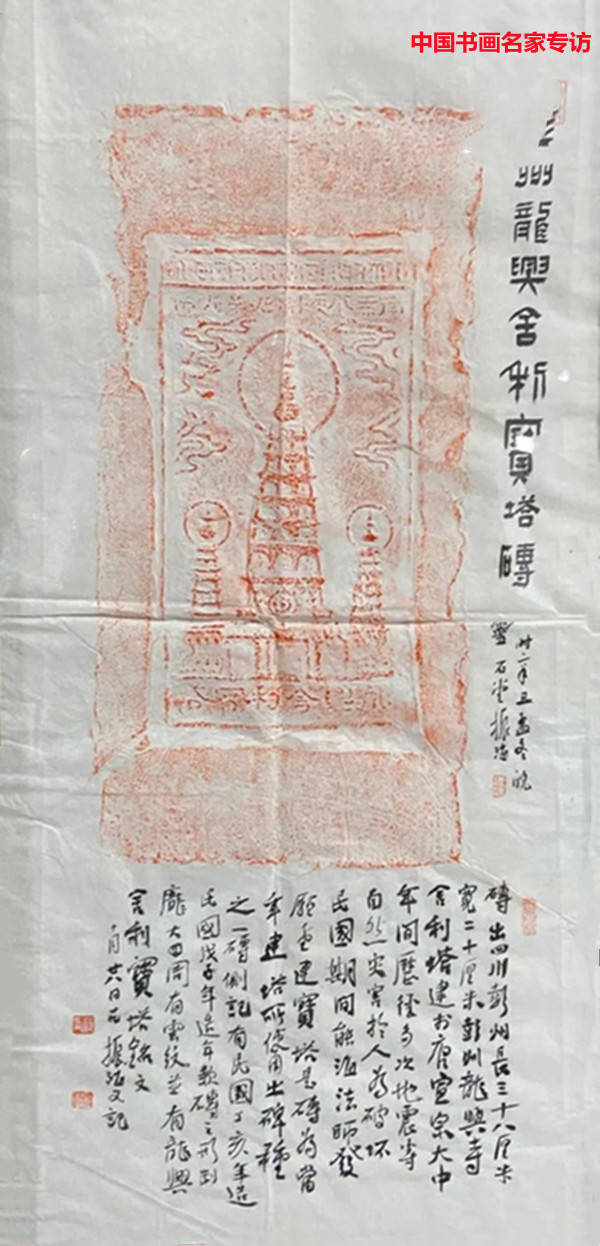 中国书画名家专访
州龍興舍利寶塔磚
石堂振
磚出四川彭州長三十八厘米
寬二十厘米彭州龍興寺
舍利塔建於唐宣宗大中
年間歷經多次地震等
自然灾害於人為破坏
民國期间能海法師發
願重建寶塔是磚為當
年建塔所使用之磚種
之一磚側記有民國丁亥年造
民國戊子年造年款磚之形制
龐大四周有雲紋並有龍興
舍利寶塔銘文
月廿八日石振 又記